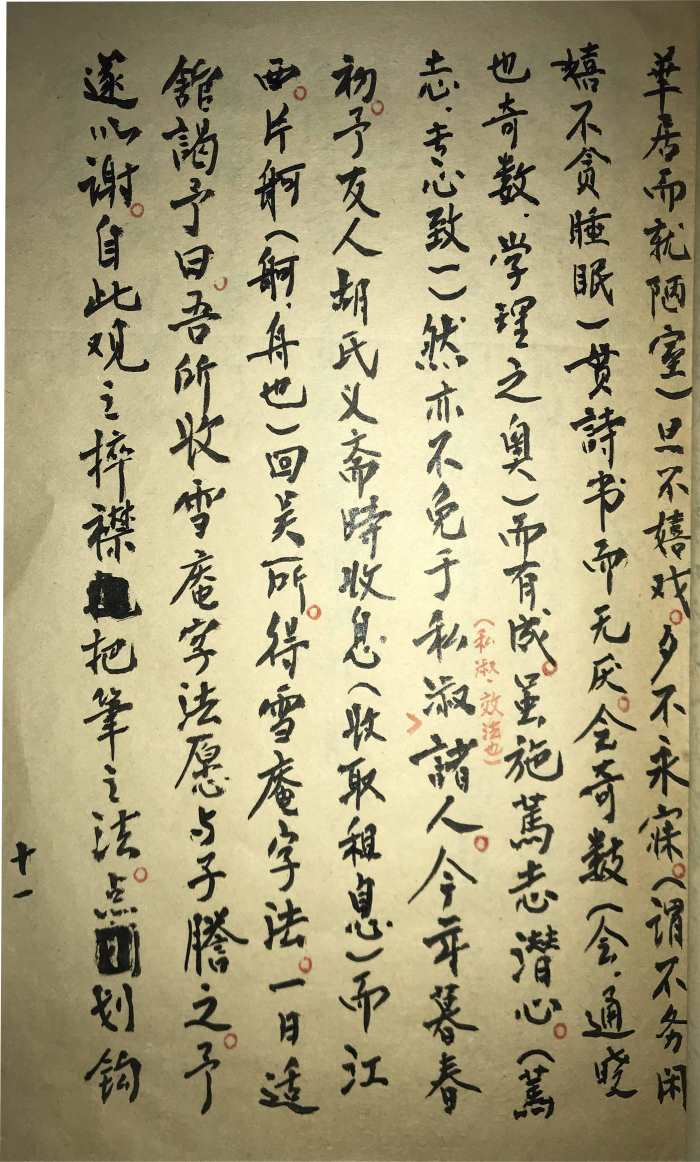 華居而就陋室）旦不嬉戏。夕不永寐。（谓不务闲
嬉不贪睡眠）贯詩书而无厌。会奇数（会．通晓
也奇数．学理之奥）而有成。虽施篤志潜心。（篤
志．专心致一）然亦不免于私淑諸人。今年暮春
（私淑．效法也）
初。予友人胡氏义斋時收息（收取租息）而江
西。片舸（舸．舟也）回吴所。得雪庵字法。一日适
舘謁予曰。吾所收雪庵字法愿与子謄之。予
遂以谢。自此观之捽襟把筆之法。点划鈎
十一